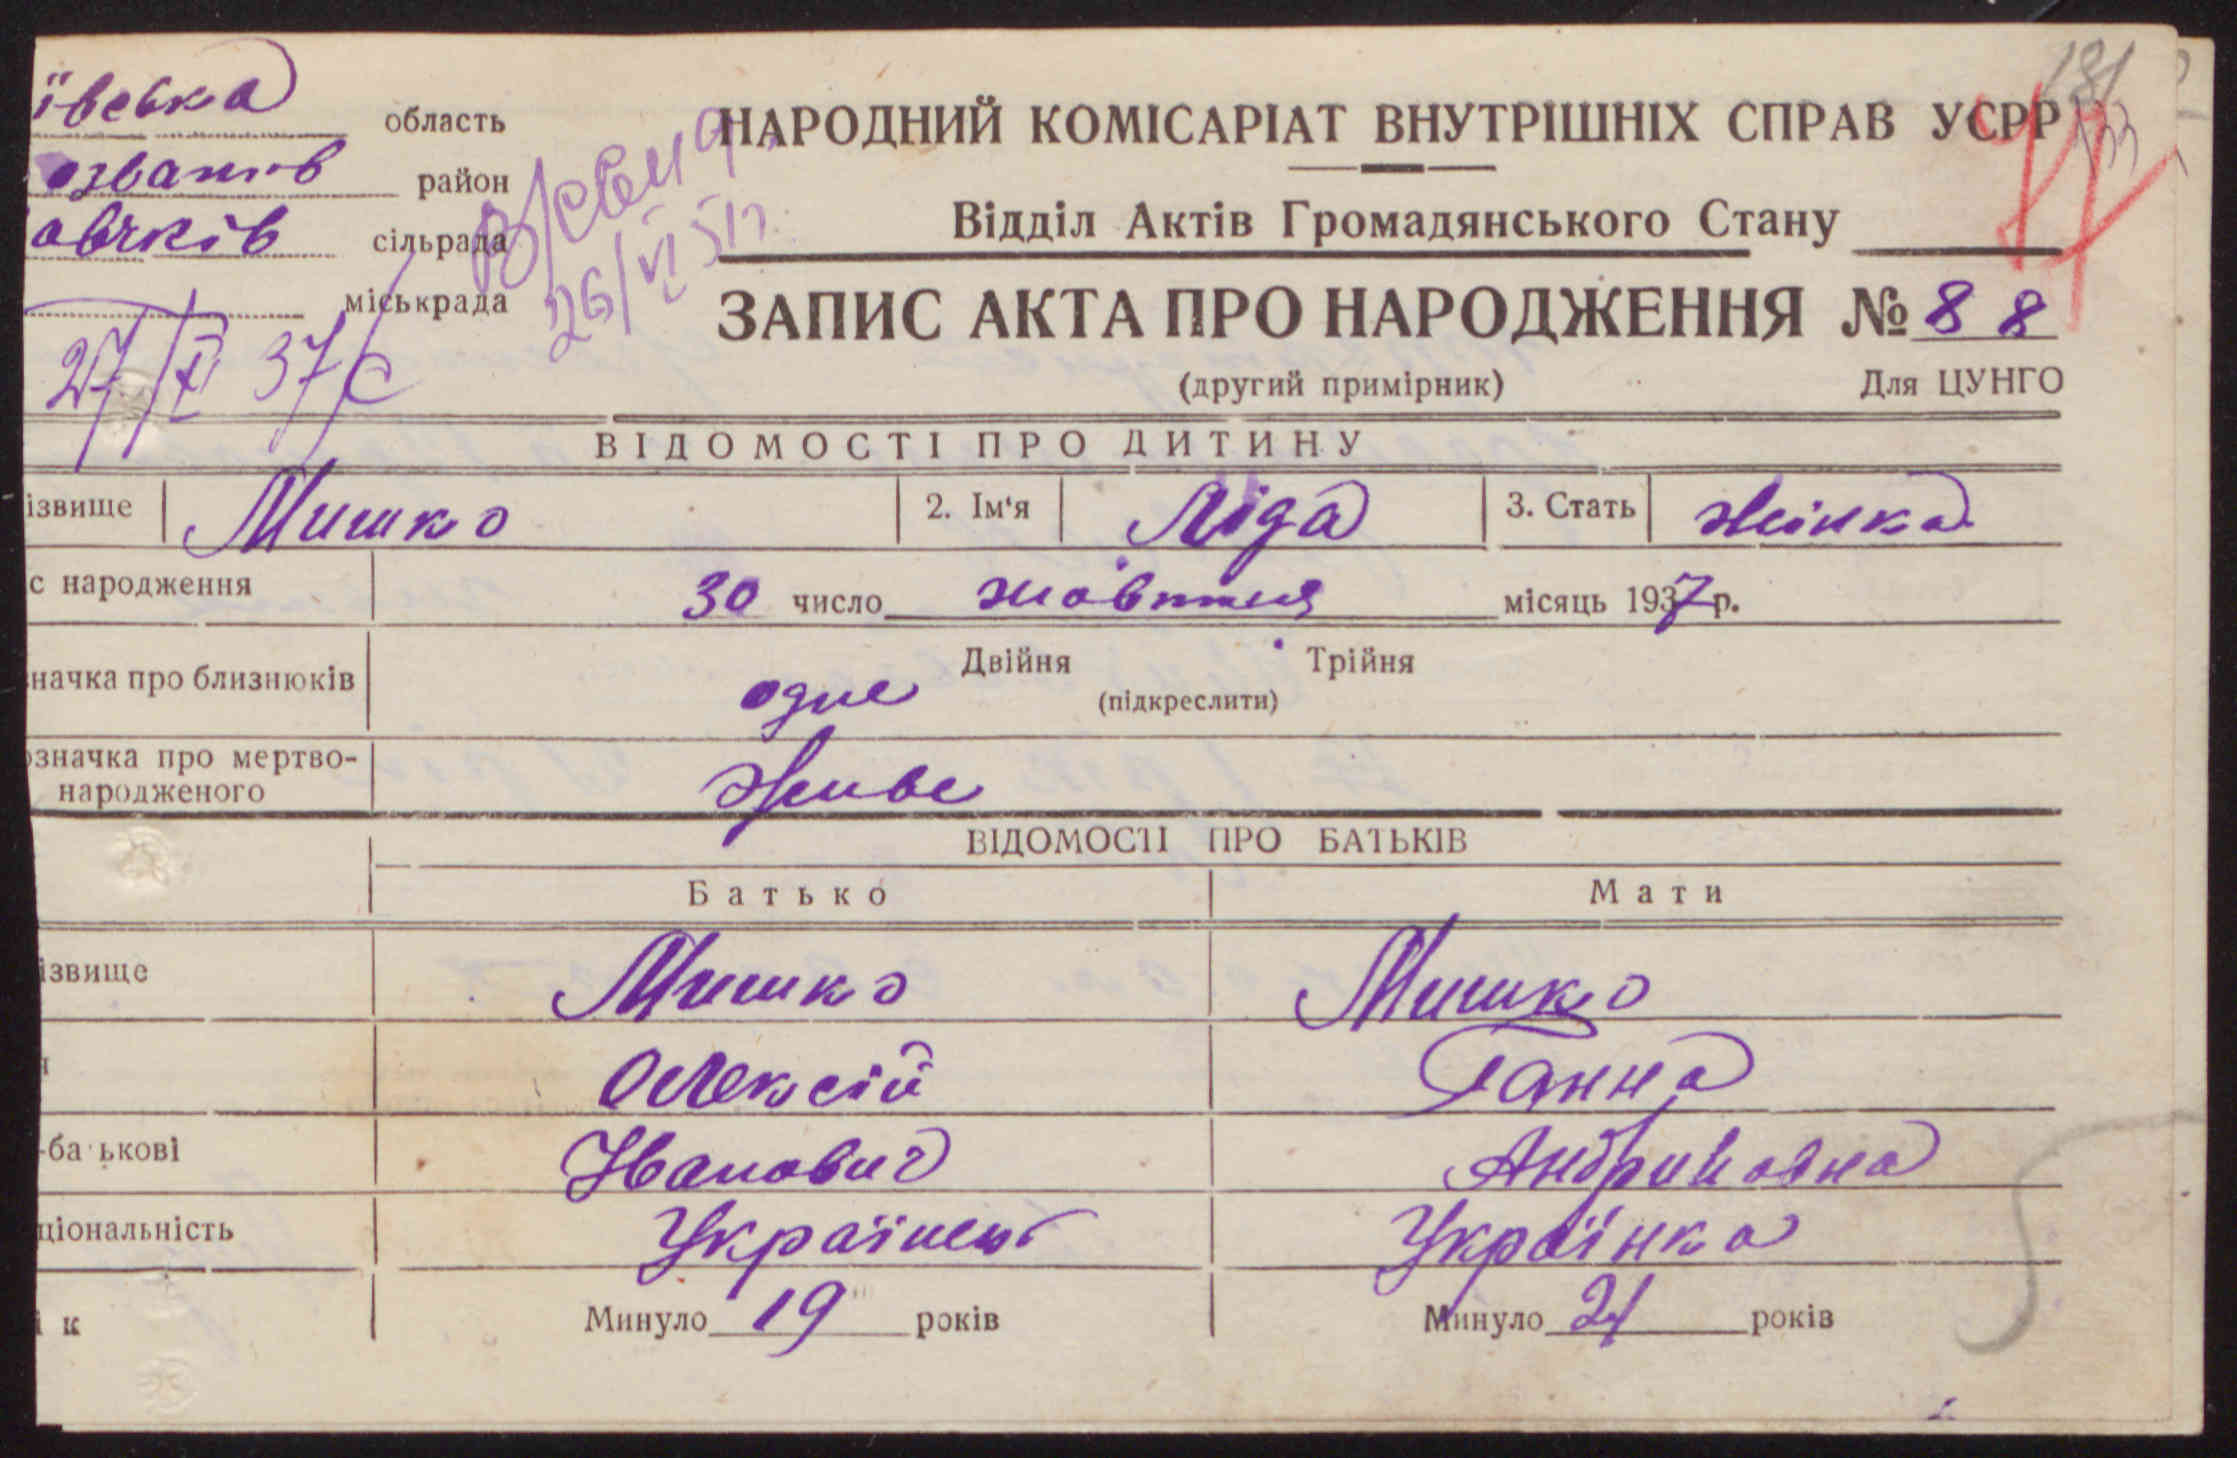 ївська область
озватів район
овчків сільрада
міськрада
27/XI 37 
26/VI 51
НАРОДНИЙ КОМІСАРІАТ ВНУТРІШНІХ СПРАВ УСРР
Відділ Актів Громадянського Стану
ЗАПИС АКТА ПРО НАРОДЖЕННЯ № 88
(другий примірник) Для ЦУНГО
ВІДОМОСТІ ПРО ДИТИНУ
ізвище Мишко 2. Ім'я Ліда 3. Стать жінка
с народження 30 число жовтня місяць 1937 р.
значка про близнюків одне Двійня Трійня
(підкреслити)
означка про мертво-
народженого Живе
ВІДОМОСТІ ПРО БАТЬКІВ
Батько Мати
ізвище Мишко Мишко
Олексій Ганна
-батькові Іванович Андриівна
ціональність Українець Українка
і к Минуло 19 років Минуло 21 років